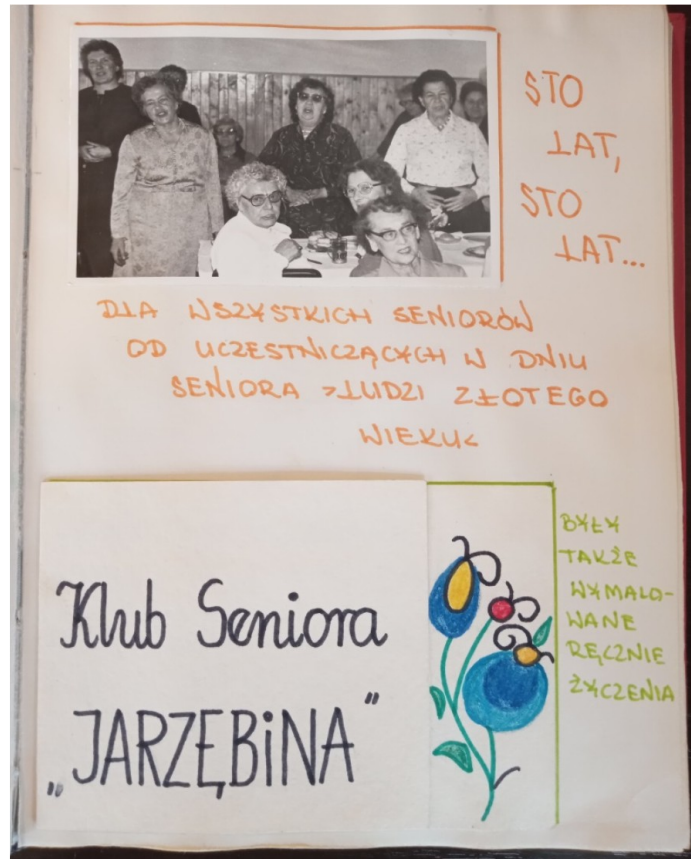 STO
LAT,
STO
LAT...
DLA WSZYSTKICH SENIORÓW
OD UCZESTNICZĄCYCH W DNIU
SENIORA >LUDZI ZŁOTEGO
WIEKU<
Klub Seniora
„JARZĘBiNA"
BYŁY
TAKŻE
WYMALO-
WANE
RĘCZNIE
ŻYCZENIA